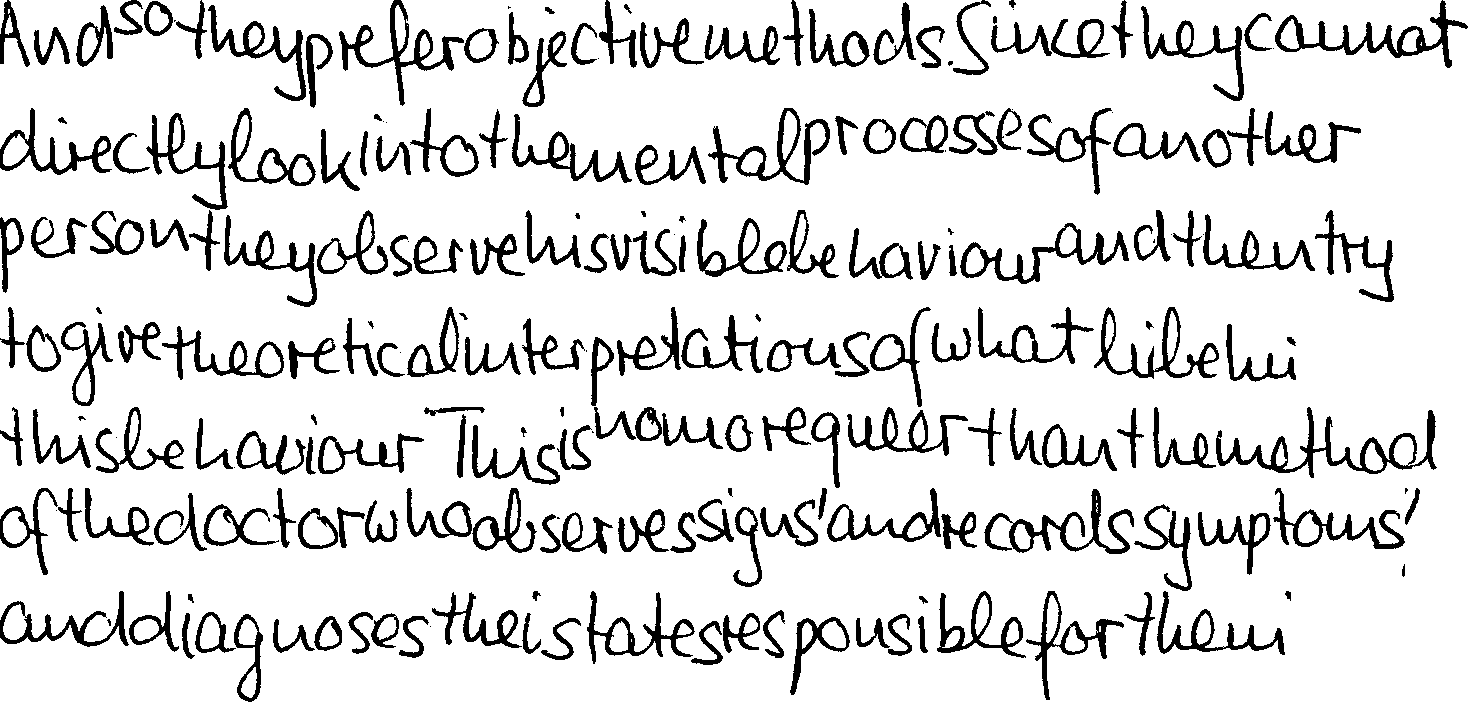 And so they prefer objective methods. Since they cannot
directly look into the mental processes of another
person they observe his visible behaviour and then try
to give theoretical interpretations of what
this behaviour This is no more queer than the method
of the doctor who observes signs' and records symptoms'
and diagnoses the states responsible for